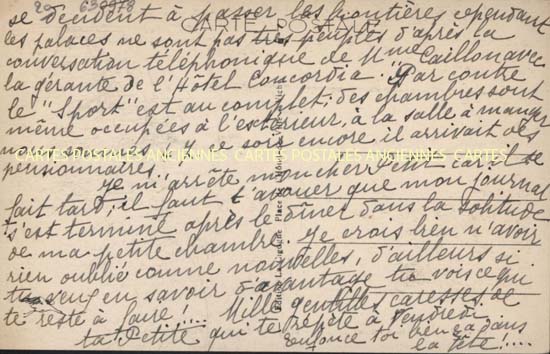 20 630978
se décident à passer les frontières cependant
CARTE POSTALE
les palaces ne sont pas très peuplés d'après la
conversation téléphonique de Mme Caillon avec
la gérante de l'Hôtel Concordia. Par contre
le "Sport" est au complet; des chambres sont
même occupées à l'extérieur, à la salle à manger
nous sommes et ce soir encore il arrivait des
CARTES POSTALES ANCIENNES CARTES POSTALES ANCIENNES CARTES
pensionnaires.
Je m'arrête mon cher Petit car il se
fait tard, il faut t'avouer que mon journal
s'est terminé après le dîner dans la solitude
de ma petite chambre. Je crois bien n'avoir
rien oublié comme nouvelles, d'ailleurs si
tu veux en savoir davantage tu vois ce qui
te reste à faire !... Mille gentilles caresses de
ta Petite qui te répète à Vendredi.
enfonce toi ben ça dans
la tête !....